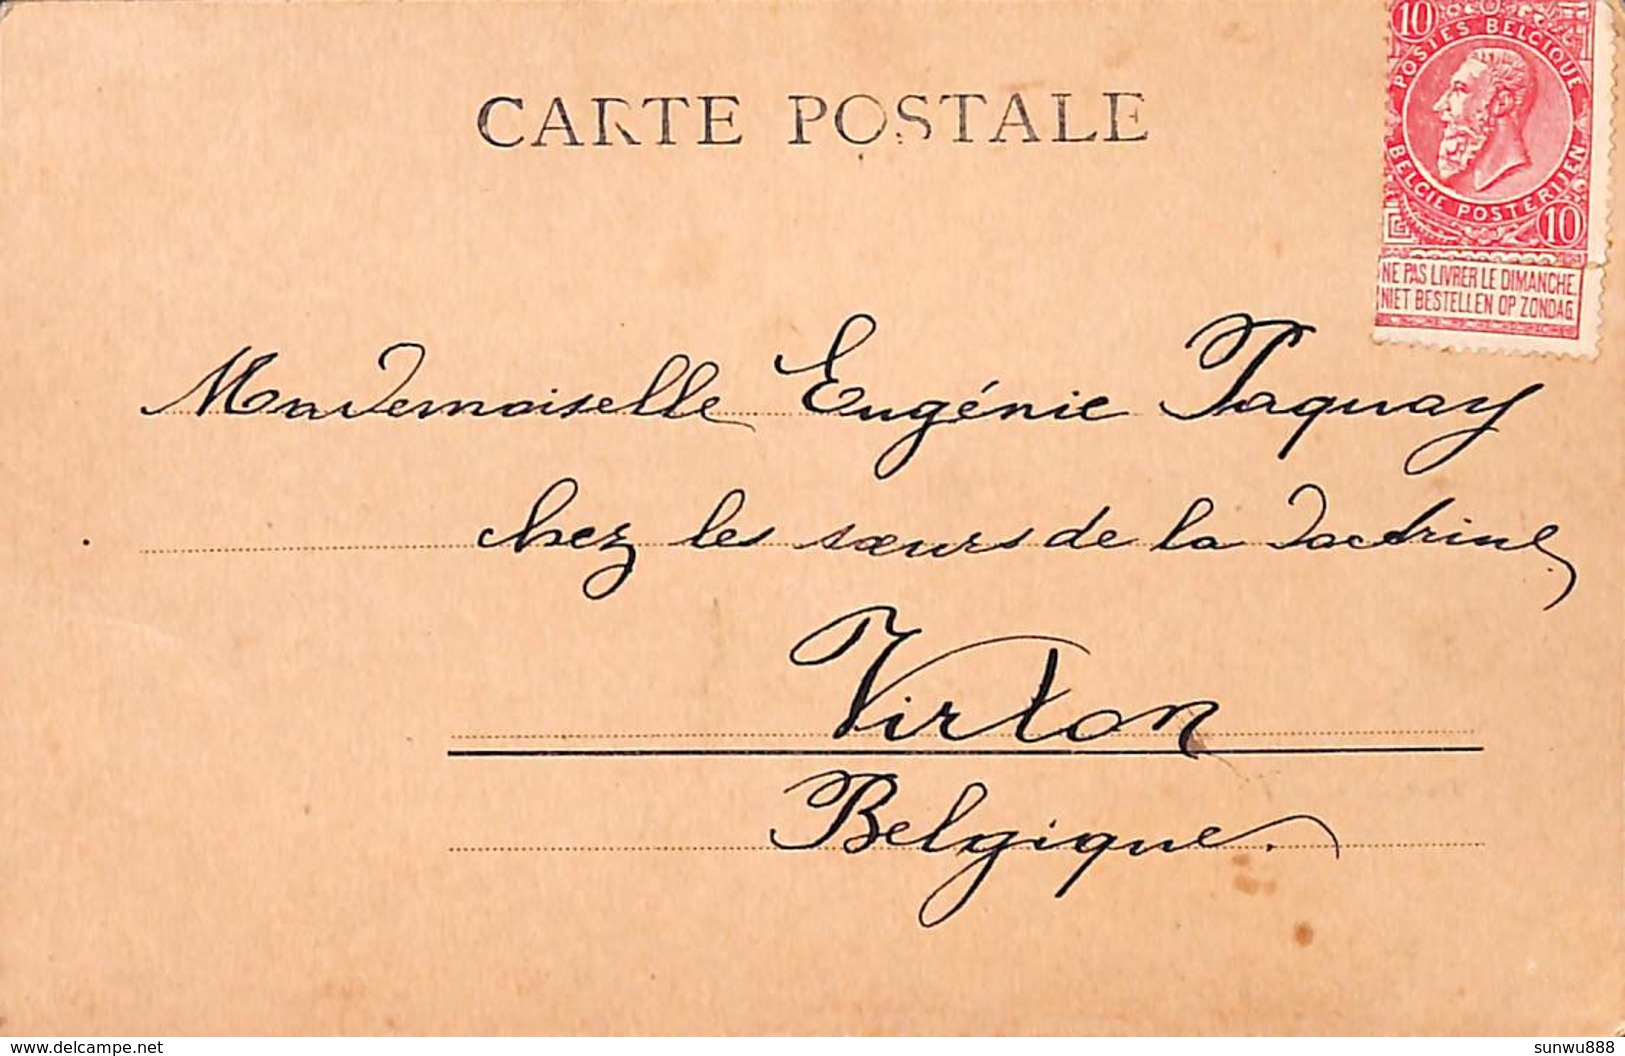 10
POSTES BELGIQUE
BELGIE POSTERIJEN
10
NE PAS LIVRER LE DIMANCHE
NIET BESTELLEN OP ZONDAG
CARTE POSTALE
Mademoiselle Eugénie Paquay
chez les sœurs de la doctrine
Virton
Belgique.
www.delcampe.net
sunwu888